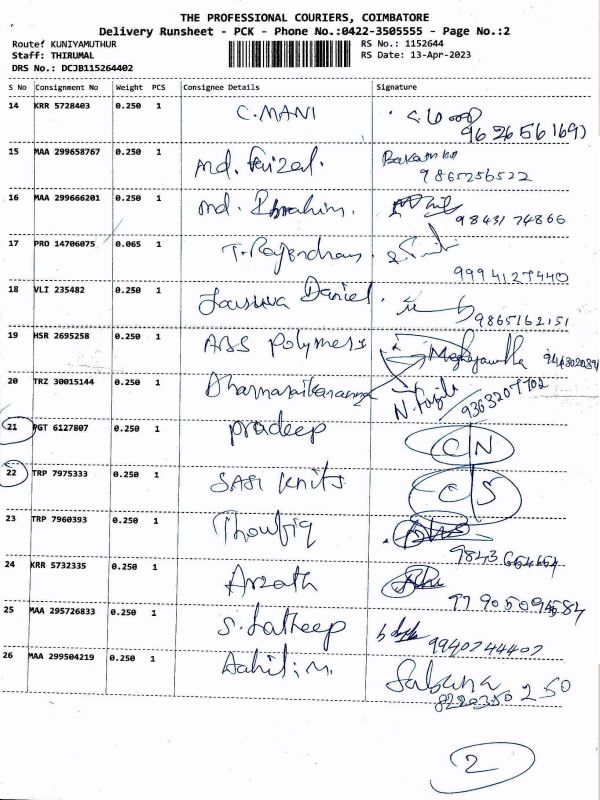 THE PROFESSIONAL COURIERS, COIMBATORE
Delivery Runsheet - PCK - Phone No.:0422-3505555 - Page No.:2
Route: KUNIYAMUTHUR RS No.: 1152644
Staff: THIRUMAL RS Date: 13-Apr-2023
DRS No.: DCJB115264402
S No Consignment No Weight PCS Consignee Details Signature
14 KRR 5728403 0.250 1 C.MANI
15 MAA 299658767 0.250 1 Md. Faizal.
9865256522
16 MAA 299666201 0.250 1 Md. Ibrahim.
9843174866
17 PRO 14706075 0.065 1 T. Rajendran.
9994127440
18 VLI 235482 0.250 1 Daniel.
9865162151
19 HSR 2695258 0.250 1 ABS Polymers
20 TRZ 30015144 0.250 1
9363207702
21 PGT 6127807 0.250 1 pradeep C N
22 TRP 7975333 0.250 1 SASI Knits C S
23 TRP 7960393 0.250 1 Thoufiq
24 KRR 5732335 0.250 1 Arzath
25 MAA 295726833 0.250 1 S. Satheep
9940744407
26 MAA 299504219 0.250 1 Aahil. M. Sabena
2